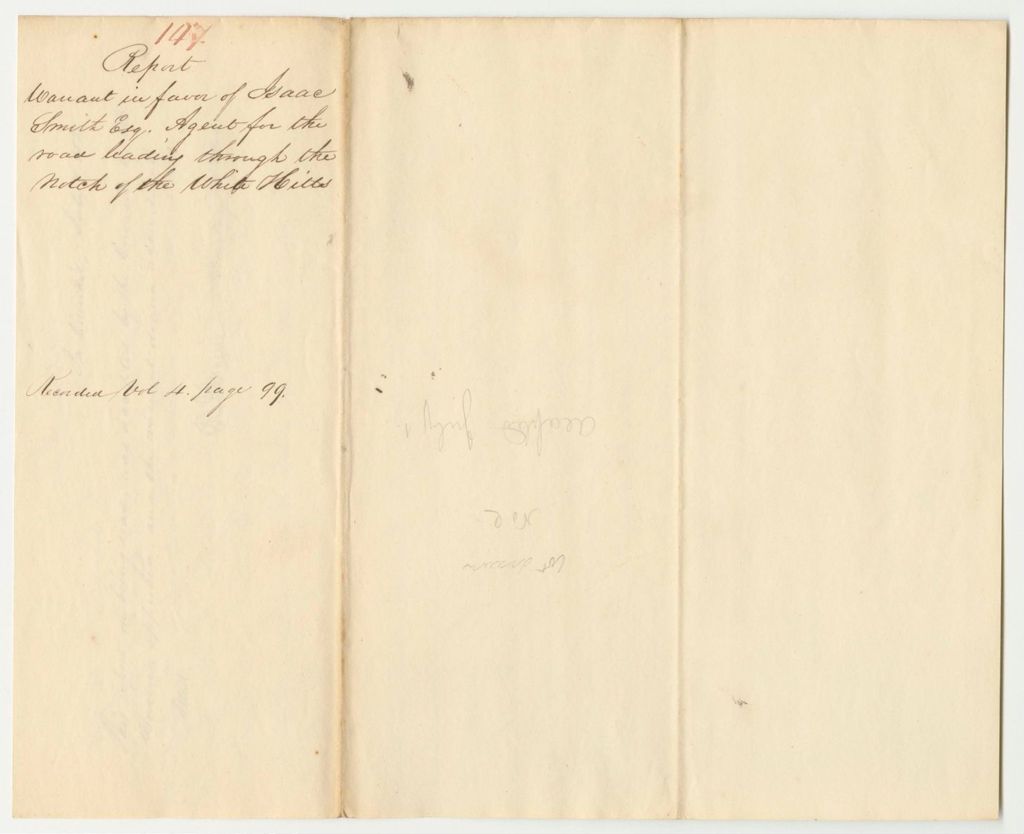 147
Report
Warrant in favor of Isaac
Smith Esq. Agent for the
road leading through the
Notch of the White Hills
Recorded Vol 4. page 99.
accepted July 1
No 2
Wt drawn